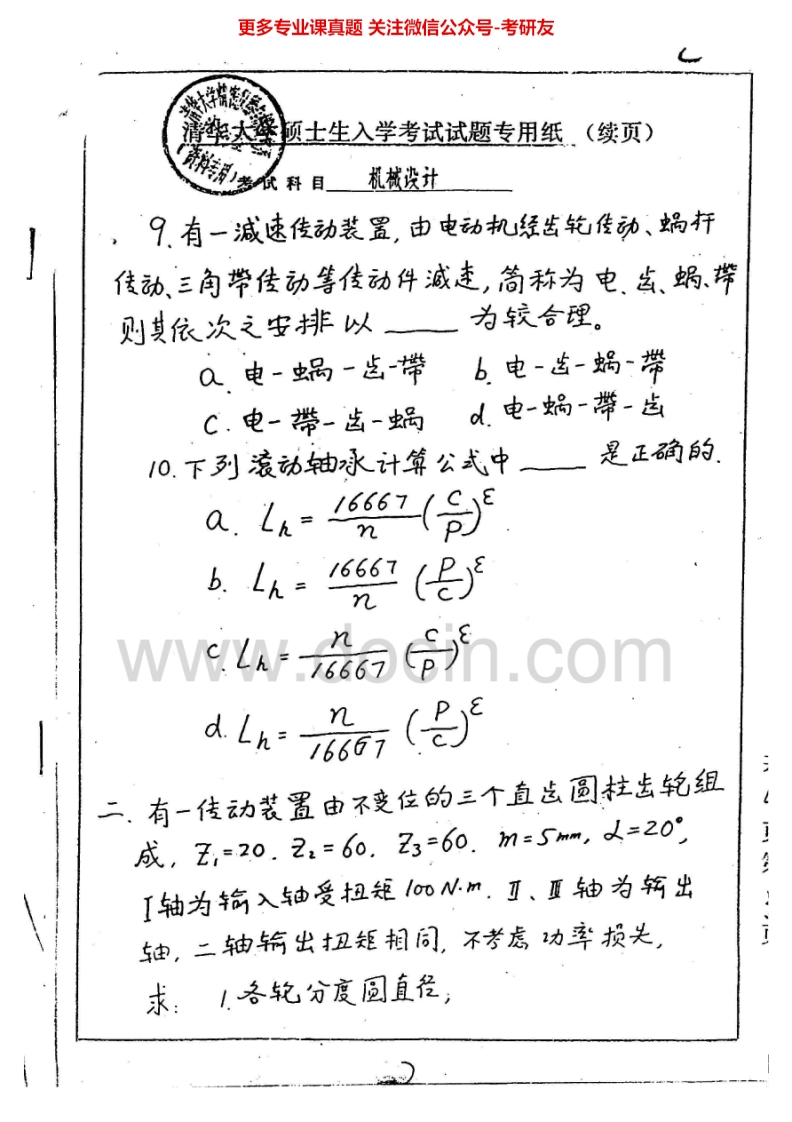 更多专业课真题 关注微信公众号-考研友
清华大学硕士生入学考试试题专用纸 (续页)
考试科目 机械设计
9. 有一减速传动装置, 由电动机经齿轮传动、蜗杆
传动、三角带传动等传动件减速, 简称为 电、齿、蜗、带
则其依次之安排以 ____ 为较合理。
a. 电-蜗-齿-带 b. 电-齿-蜗-带
c. 电-带-齿-蜗 d. 电-蜗-带-齿
10. 下列滚动轴承计算公式中 ____ 是正确的.
a. Lh = 16667/n (C/P)^ε
b. Lh = 16667/n (P/C)^ε
c. Lh = n/16667 (C/P)^ε
d. Lh = n/16667 (P/C)^ε
www.docin.com
二. 有一传动装置由不变位的三个直齿圆柱齿轮组
成, Z₁=20. Z₂=60. Z₃=60. m=5mm, α=20°,
I轴为输入轴受扭矩100N·m. Ⅱ、Ⅲ轴为输出
轴, 二轴输出扭矩相同, 不考虑功率损失,
求: 1. 各轮分度圆直径;